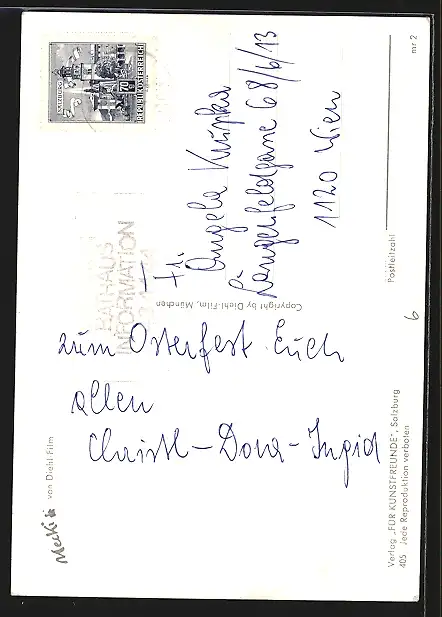 Mecki von Diehl-Film
zum Osterfest Euch
allen
Christl - Dora - Ingid
Verlag „FÜR KUNSTFREUNDE", Salzburg
405 Jede Reproduktion verboten
Copyright by Diehl-Film, München
RATHAUS
INFORMATION
SALZBURG
70
REPUBLIK ÖSTERREICH
Frl.
Angela Krupka
Längenfeldgasse 68/6/13
1120 Wien
Postleitzahl
mr 2
6